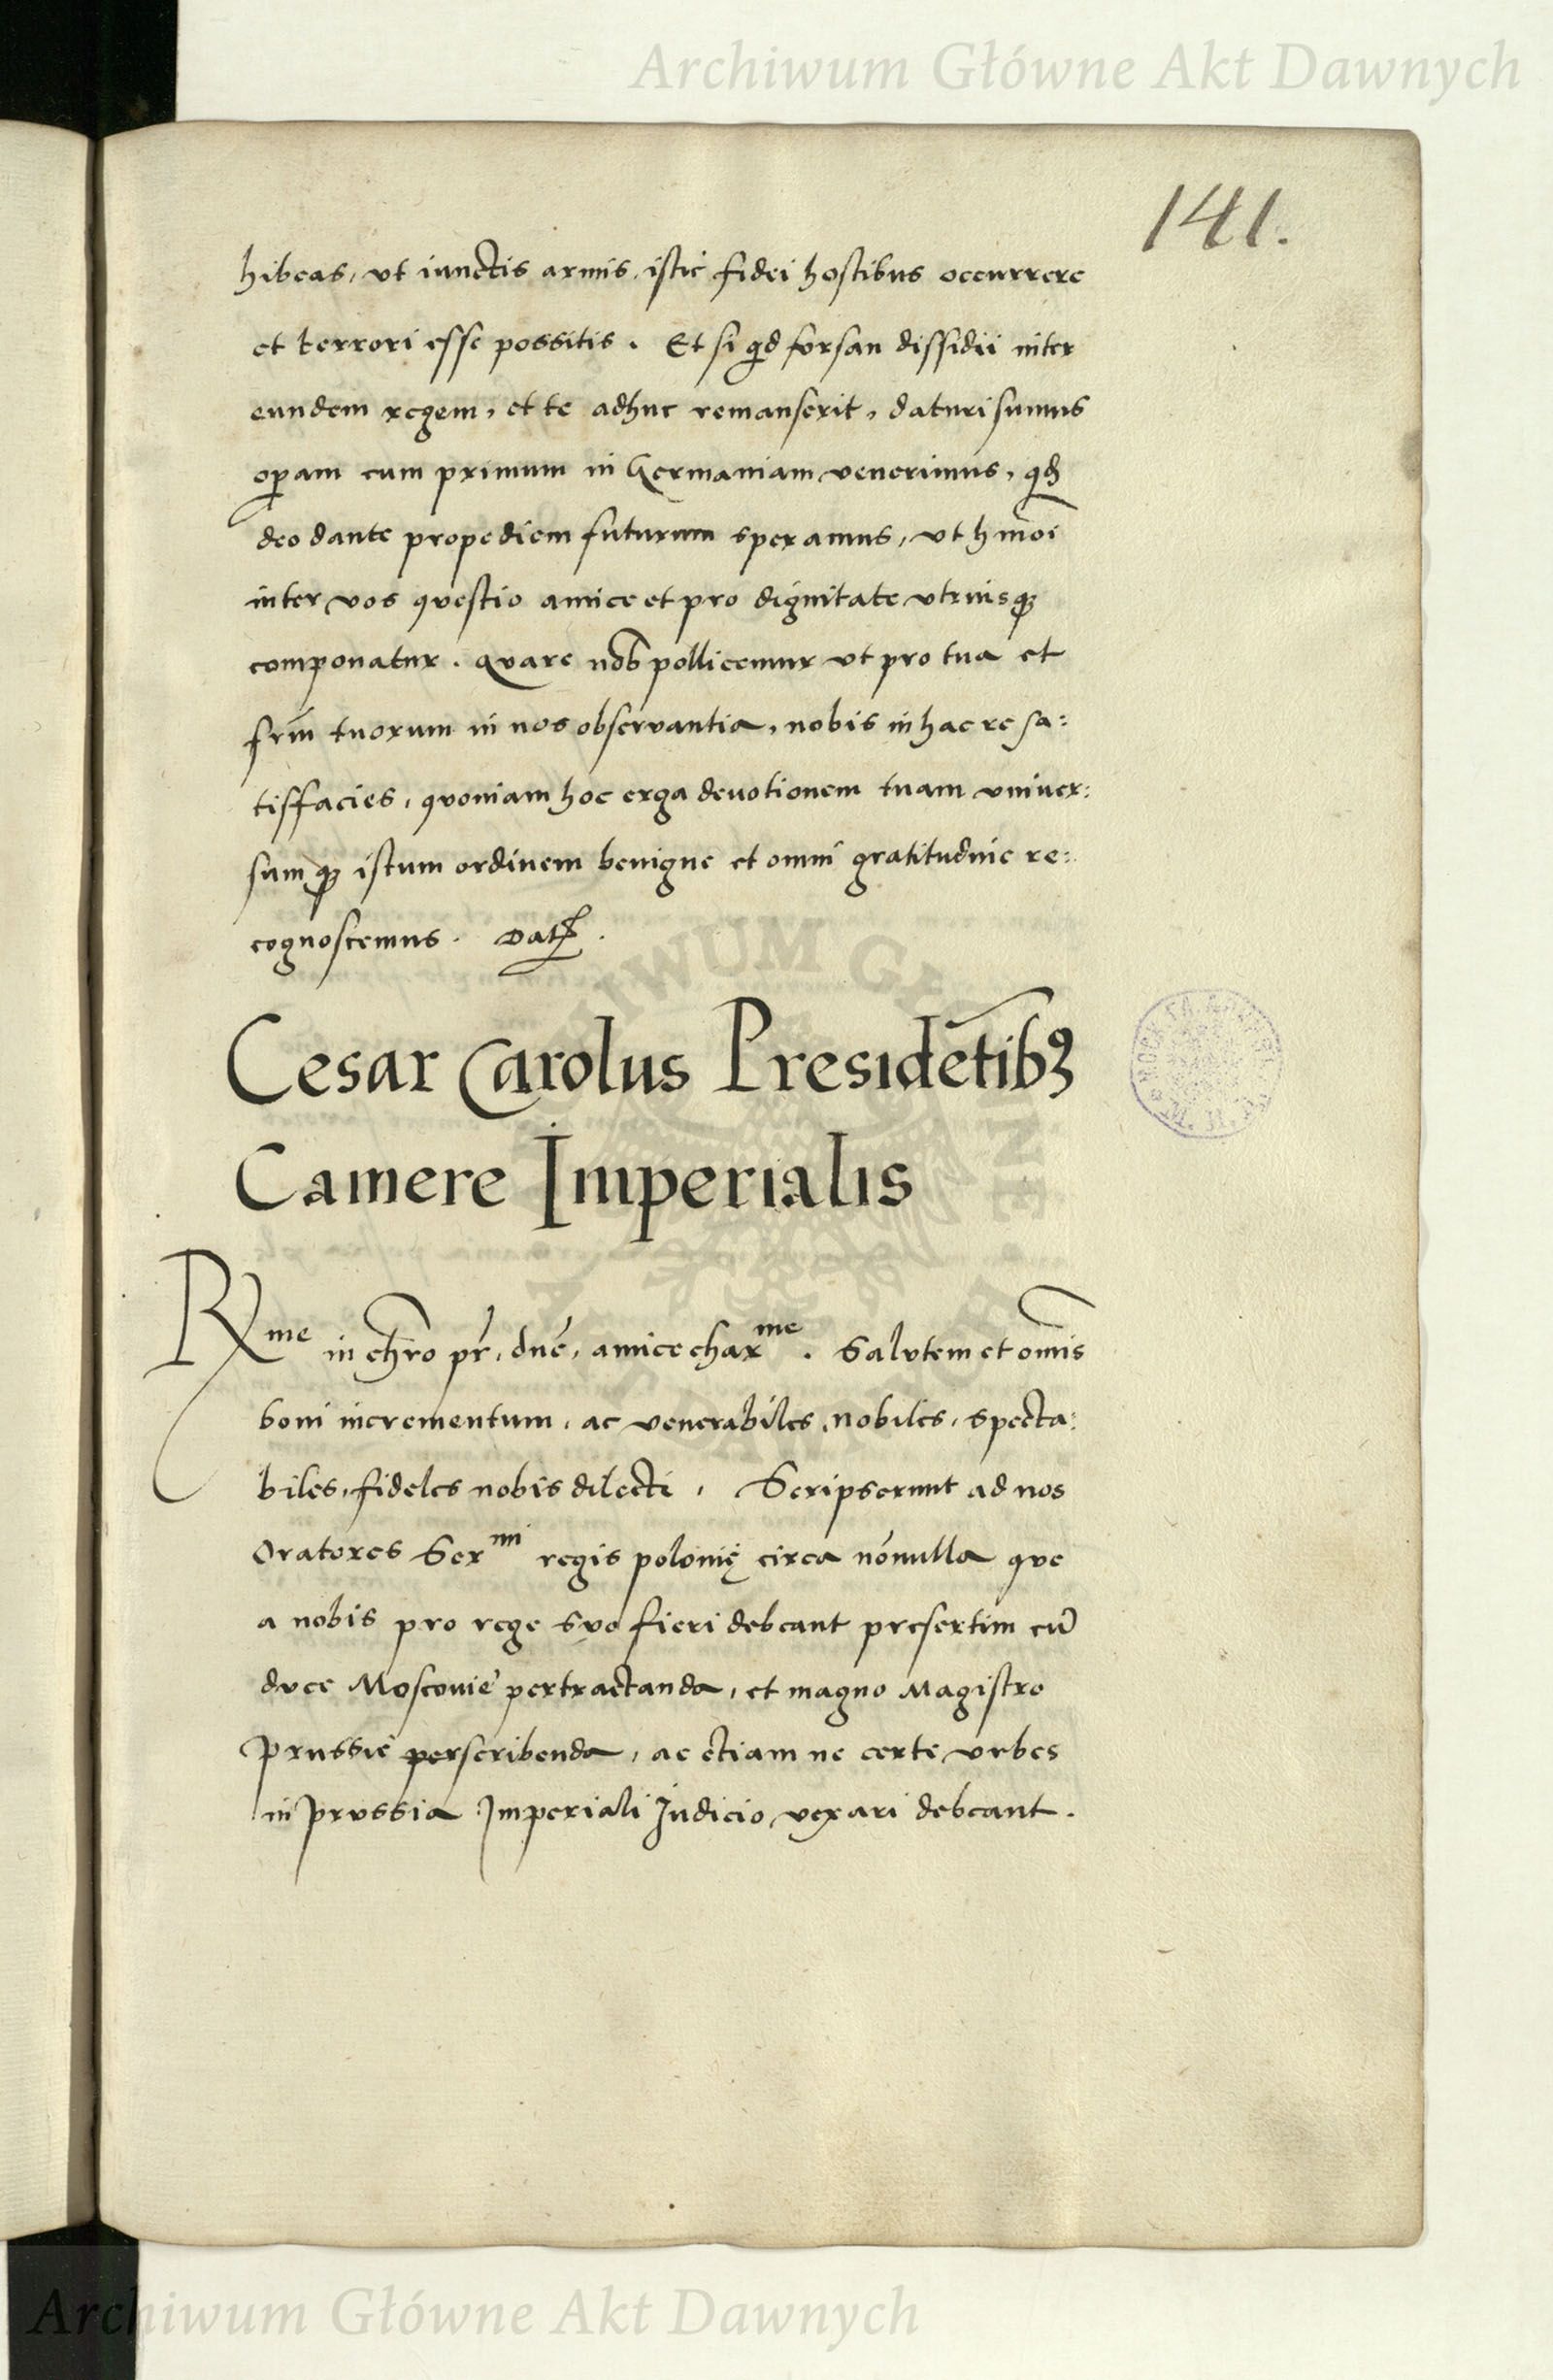 Archiwum Główne Akt Dawnych
141.
hibeas, ut iunctis armis, istic fidei hostibus occurrere
et terrori esse possitis. Et si qid forsan dissidii inter
eundem regem, et te adhuc remanserit, daturi sumus
opam cum primum in Germaniam venerimus, qd
deo dante propediem futurum speramus, ut hmoi
inter vos questio amice et pro dignitate vtriusq
componatur. quare nob pollicemur ut pro tua et
frm tuorum in nos observantia, nobis in hac re sa:
tisffacies, quoniam hoc erga deuotionem tuam vniver:
sumq istum ordinem benigne et omni gratitudine re:
cognoscemus. Dat.
Cesar Carolus Presidētibꝫ
Camere Imperialis
Rme in chro pr, dne, amice charme. Salutem et omis
boni incrementum, ac venerabiles, nobiles, specta:
biles, fideles nobis dilecti, Scripserunt ad nos
Oratores Sermi regis polonię circa nōnulla que
a nobis pro rege suo fieri debeant presertim cū
duce Moscouie pertractanda, et magno Magistro
Prussie perscribenda, ac etiam ne certe vrbes
in Prussia Imperiali Judicio vexari debeant.
Archiwum Główne Akt Dawnych